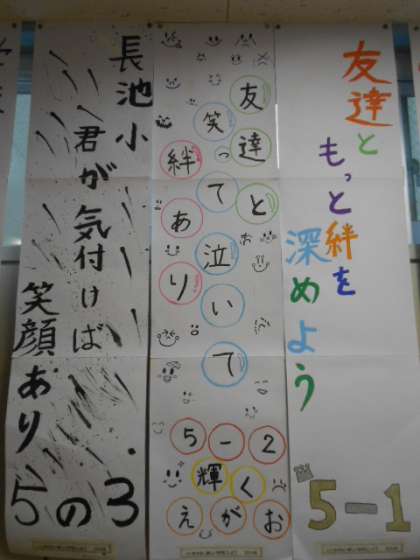 友達と
もっと絆を
深めよう
5-1
友達と
笑って泣いて
絆あり
5-2
輝く
えがお
長池小
君が気付けば
笑顔あり
5の3